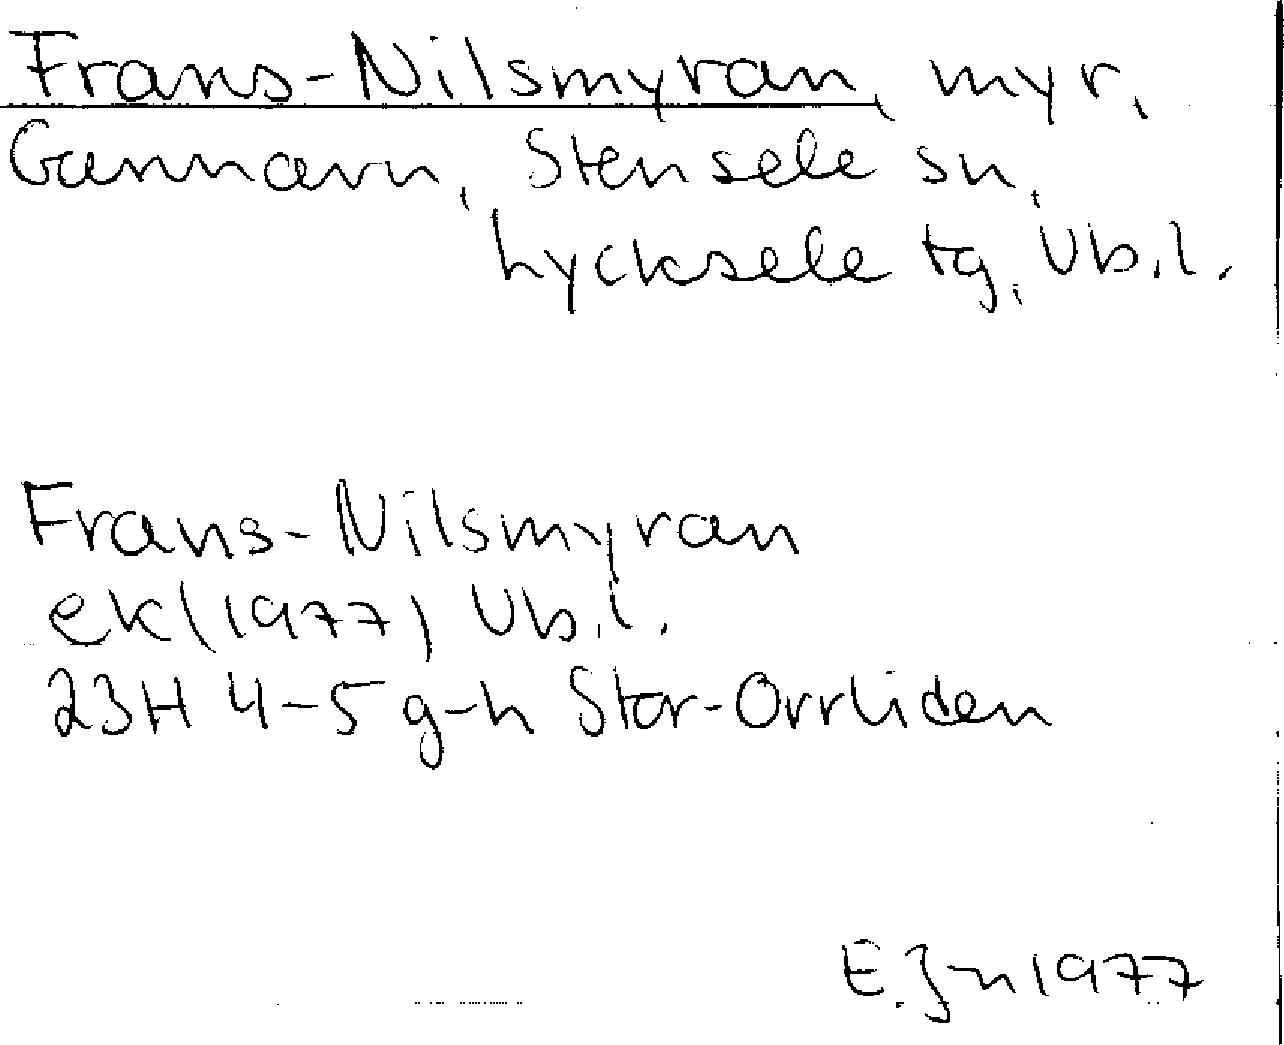 Frans-Nilsmyran, myr,
Gunnarn, Stensele sn,
Lycksele tg, Vb.l.
Frans-Nilsmyran
ek (1977) Vb.l.
23H 4-5 g-h Stor-Orrliden
E. Jn 1977